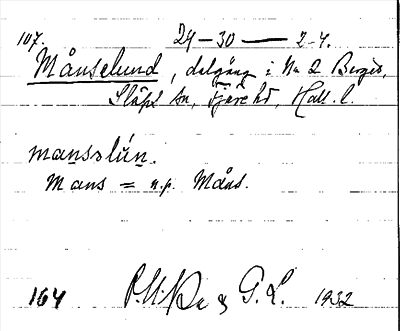 107. 24-30 — 2-4.
Månselund, dalgång i Na 2 Berges,
Släps sn, Fjäre hd, Hall. l.
manzslún.
Mans = n.p. Måns.
164 & G.L. 1932